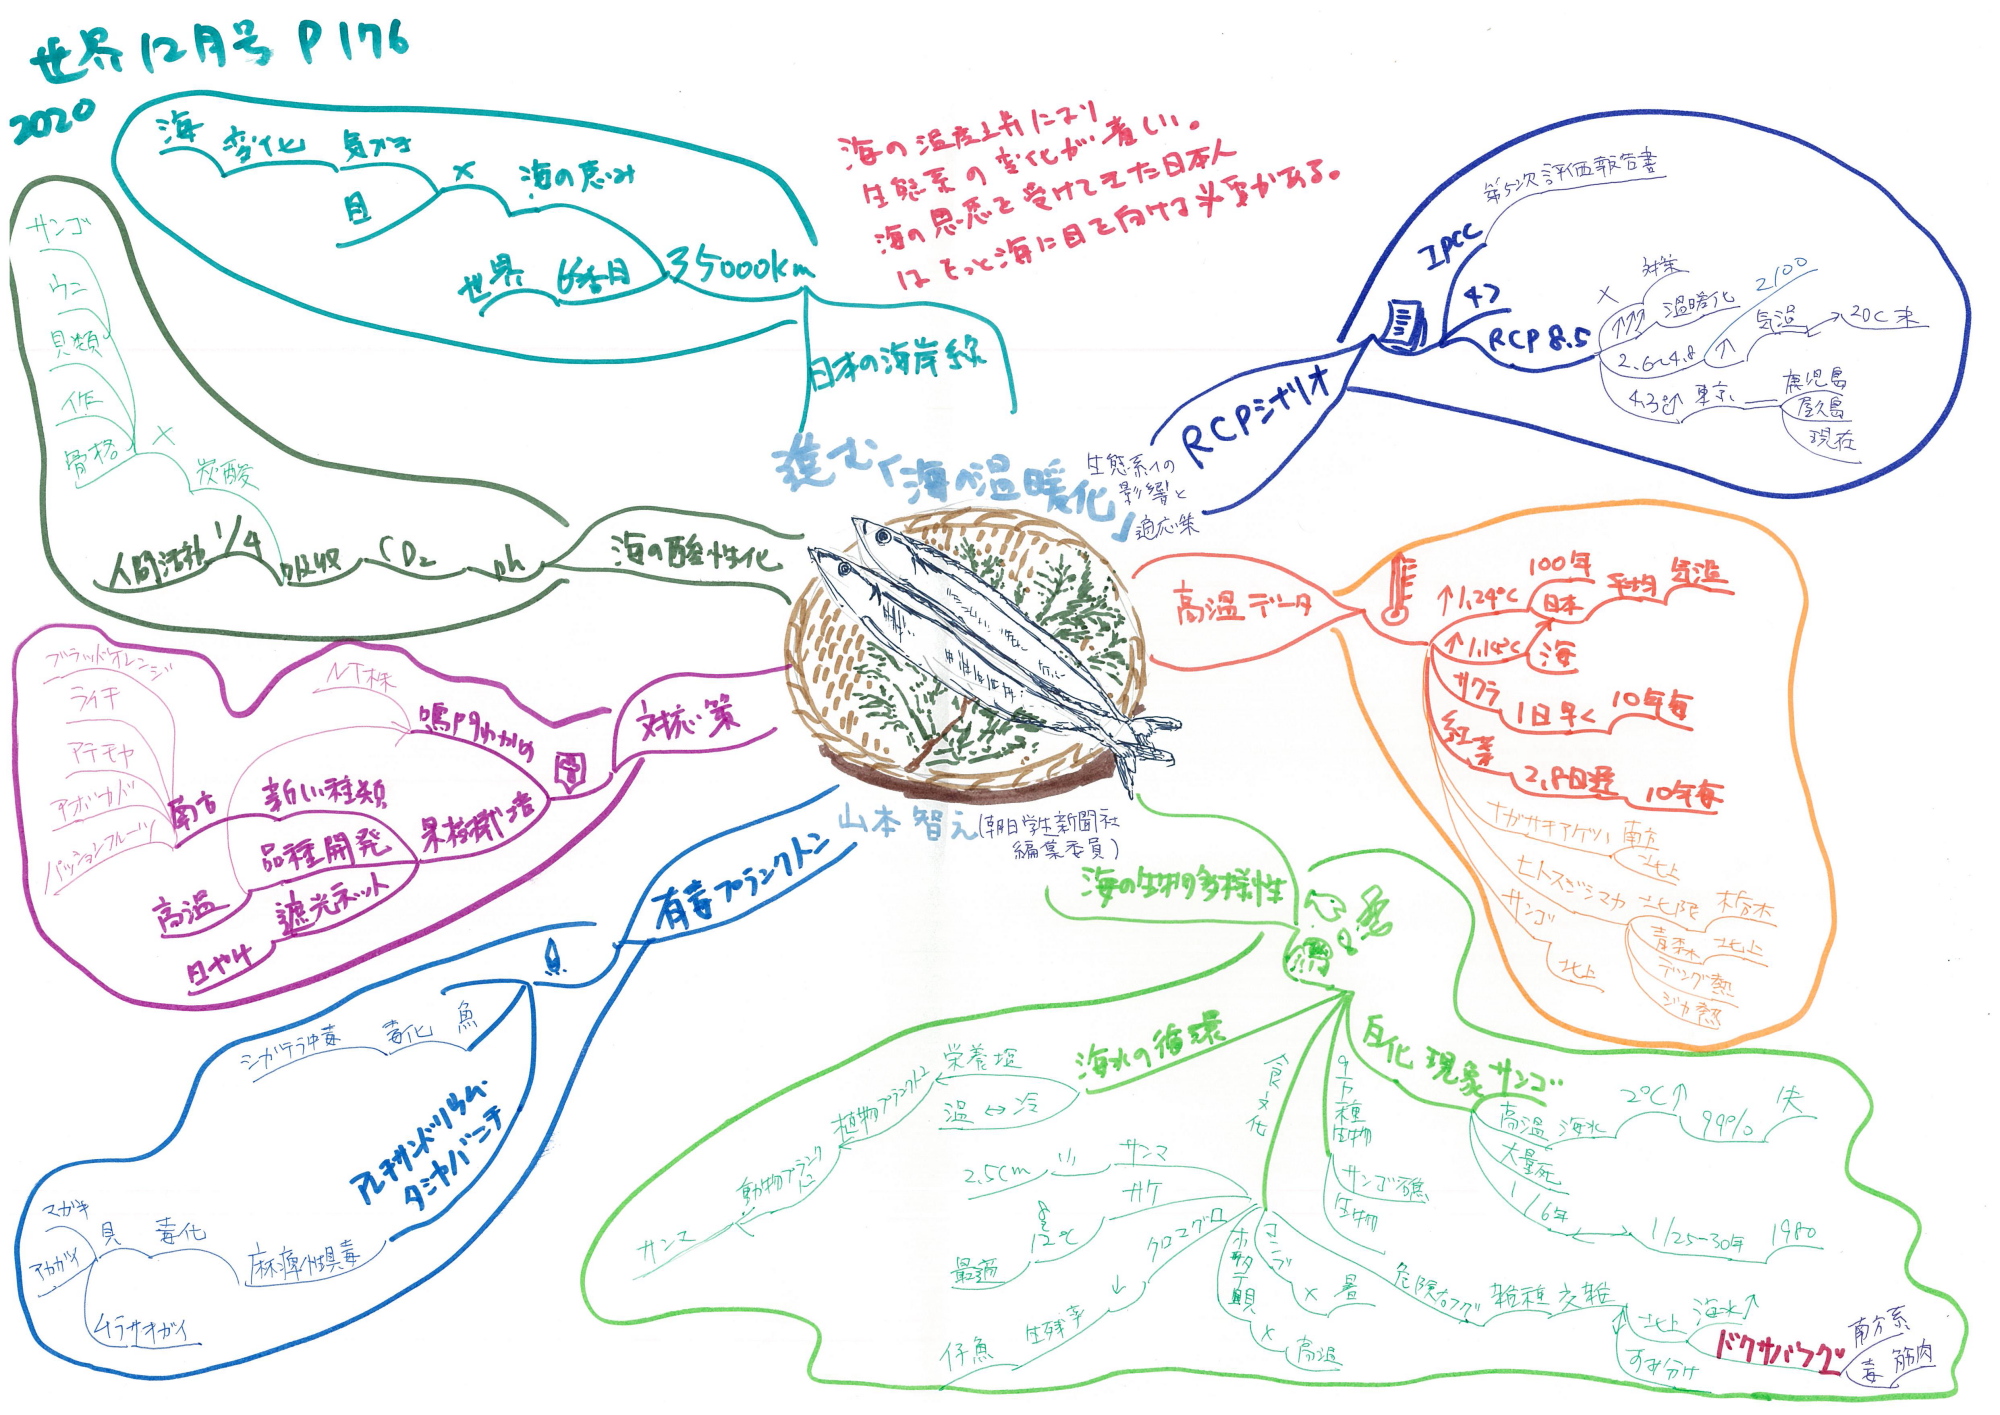 世界12月号 P176
2020
海の温度上昇により
生態系の変化が著しい。
海の恩恵を受けてきた日本人
はもっと海に目を向ける必要がある。
進む「海の温暖化」
生態系への
影響と
適応策
山本智之(朝日学生新聞社
編集委員)
日本の海岸線
35000km
世界 6番目
海の恵み
×
海 変化 気づき
目
RCPシナリオ
IPCC
第5次評価報告書
4つ
RCP8.5
×
対策
↑↑↑ 温暖化
2.6〜4.8 ↑
2100
気温
4.3℃↑ 東京
鹿児島
屋久島
現在
高温データ
↑1.24℃
100年
日本 平均 気温
↑1.14℃ 海
サクラ 1日早く 10年毎
紅葉 2.8日遅 10年毎
ナガサキアゲハ 南方
北上
ヒトスジシマカ 北限 栃木
青森 北上
デング熱
ジカ熱
サンゴ 北上
海の生物多様性
白化現象サンゴ
高温 海水 2℃↑ 99% 失
大量死
1/6年 ↔ 1/25-30年 1980
9万種
生物
サンゴ礁
生物
食文化
サンマ
2.5cm
サケ
12℃
最適
クロマグロ
↓
生残率
仔魚
ホタテ貝
×
高温
コンブ
× 暑
危険なフグ
雑種 交雑
北上 海水↑
すみ分け
ドクサバフグ
南方系
毒 筋肉
海水の循環
栄養塩
温 ↔ 冷
植物プランクトン
動物プランクトン
サンマ
有毒プランクトン
魚
毒化
シガテラ中毒
アレキサンドリウム
タミヤバニチ
麻痺性貝毒
貝 毒化
マガキ
アカガイ
ムラサキガイ
対応策
鳴門わかめ
NT株
果樹栽培
新しい種類
南方
ブラッドオレンジ
ライチ
アテモヤ
アボカド
パッションフルーツ
品種開発
高温
遮光ネット
日やけ
海の酸性化
ph
CO₂
吸収
1/4
人間活動
炭酸
×
骨格
作
貝類
ウニ
サンゴ